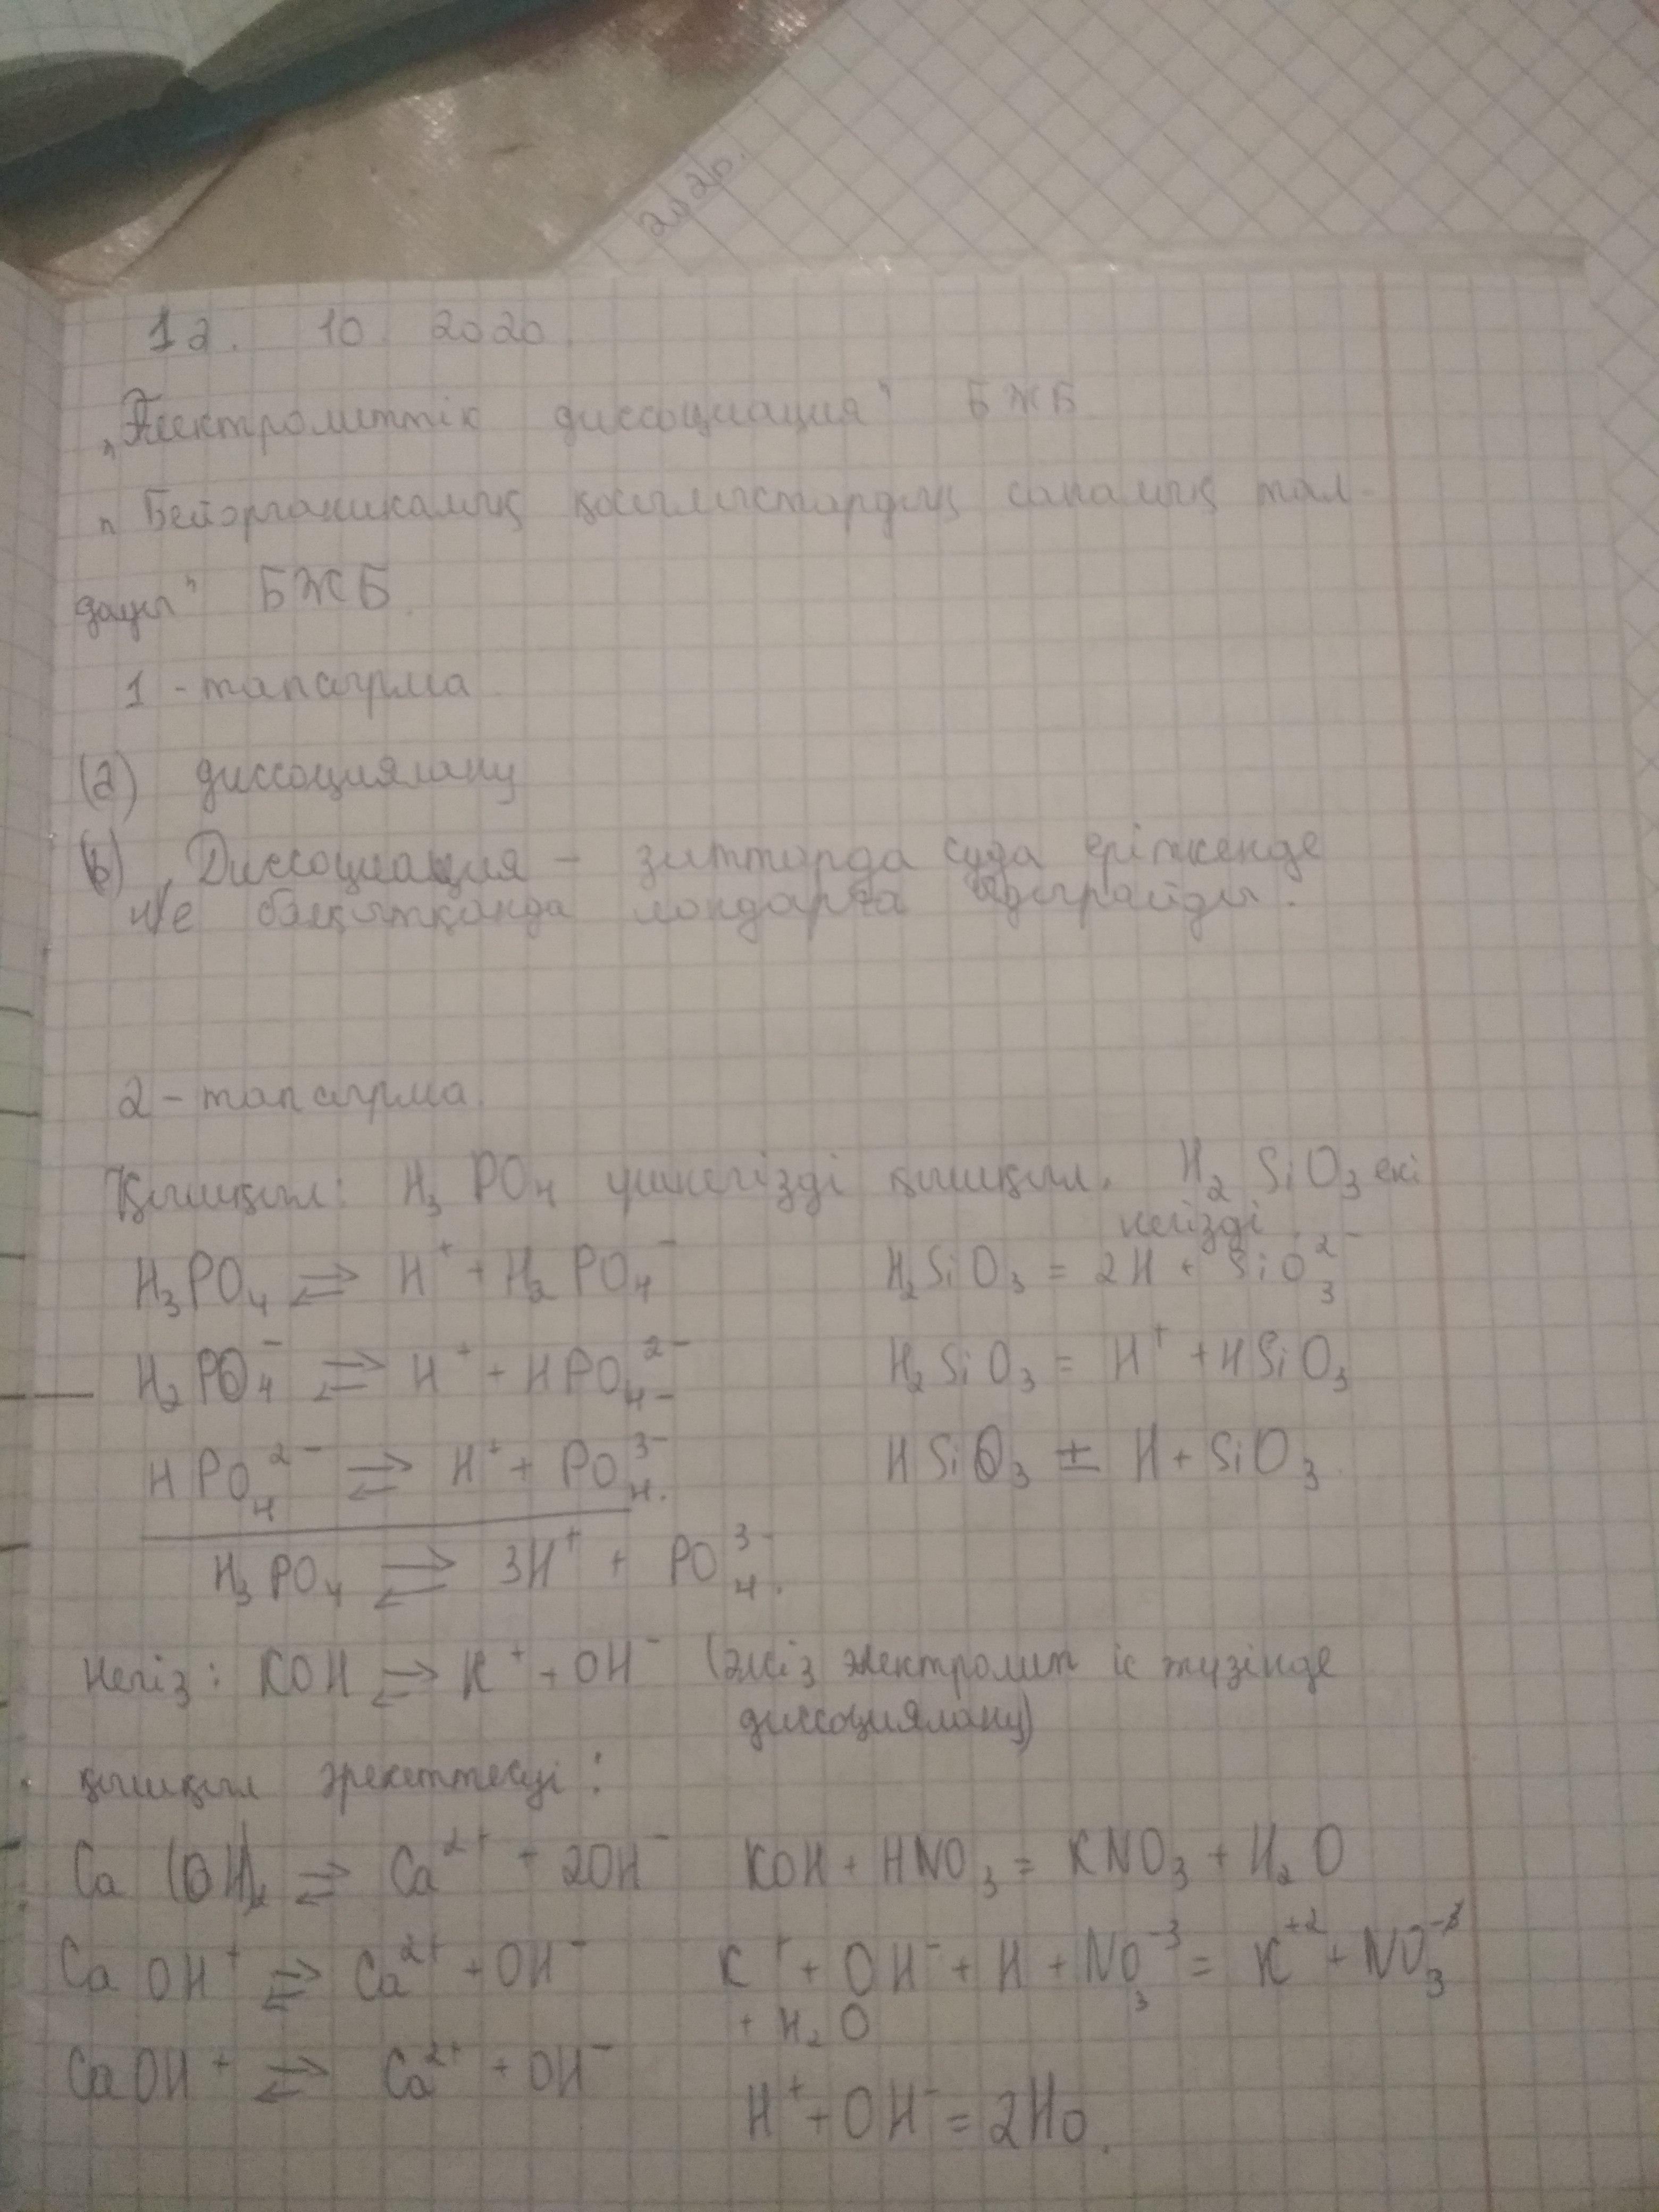 2020.
12. 10. 2020.
„Электролиттік диссоциация" БЖБ
„Бейорганикалық қосылыстардың сапалық тал-
дауы" БЖБ.
1 - тапсырма
(а) диссоциялану
(b) Диссоциация - заттарда суда еріткенде
н/е балқытқанда иондарға ыдырайды.
2 - тапсырма.
Қышқыл: H₃PO₄ үшнегізді қышқыл. H₂SiO₃ екі
негізді
H₃PO₄ ⇄ H⁺ + H₂PO₄⁻ H₂SiO₃ = 2H + SiO₃²⁻
H₂PO₄⁻ ⇄ H⁺ + HPO₄²⁻ H₂SiO₃ = H⁺ + HSiO₃
HPO₄²⁻ ⇄ H⁺ + PO₄³⁻. HSiO₃ ± H + SiO₃.
H₃PO₄ ⇄ 3H⁺ + PO₄³⁻.
Негіз: KOH ⇄ K⁺ + OH⁻ (әлсіз электролит іс жүзінде
диссоциялану)
қышқыл әрекеттесуі:
Ca(OH)₂ ⇄ Ca²⁺ + 2OH⁻ KOH + HNO₃ = KNO₃ + H₂O
CaOH⁺ ⇄ Ca²⁺ + OH⁻ K⁺ + OH⁻ + H + NO₃⁻³ = K⁺² + NO₃⁻³
+ H₂O
CaOH⁺ ⇄ Ca²⁺ + OH⁻
H⁺ + OH⁻ = 2HO.